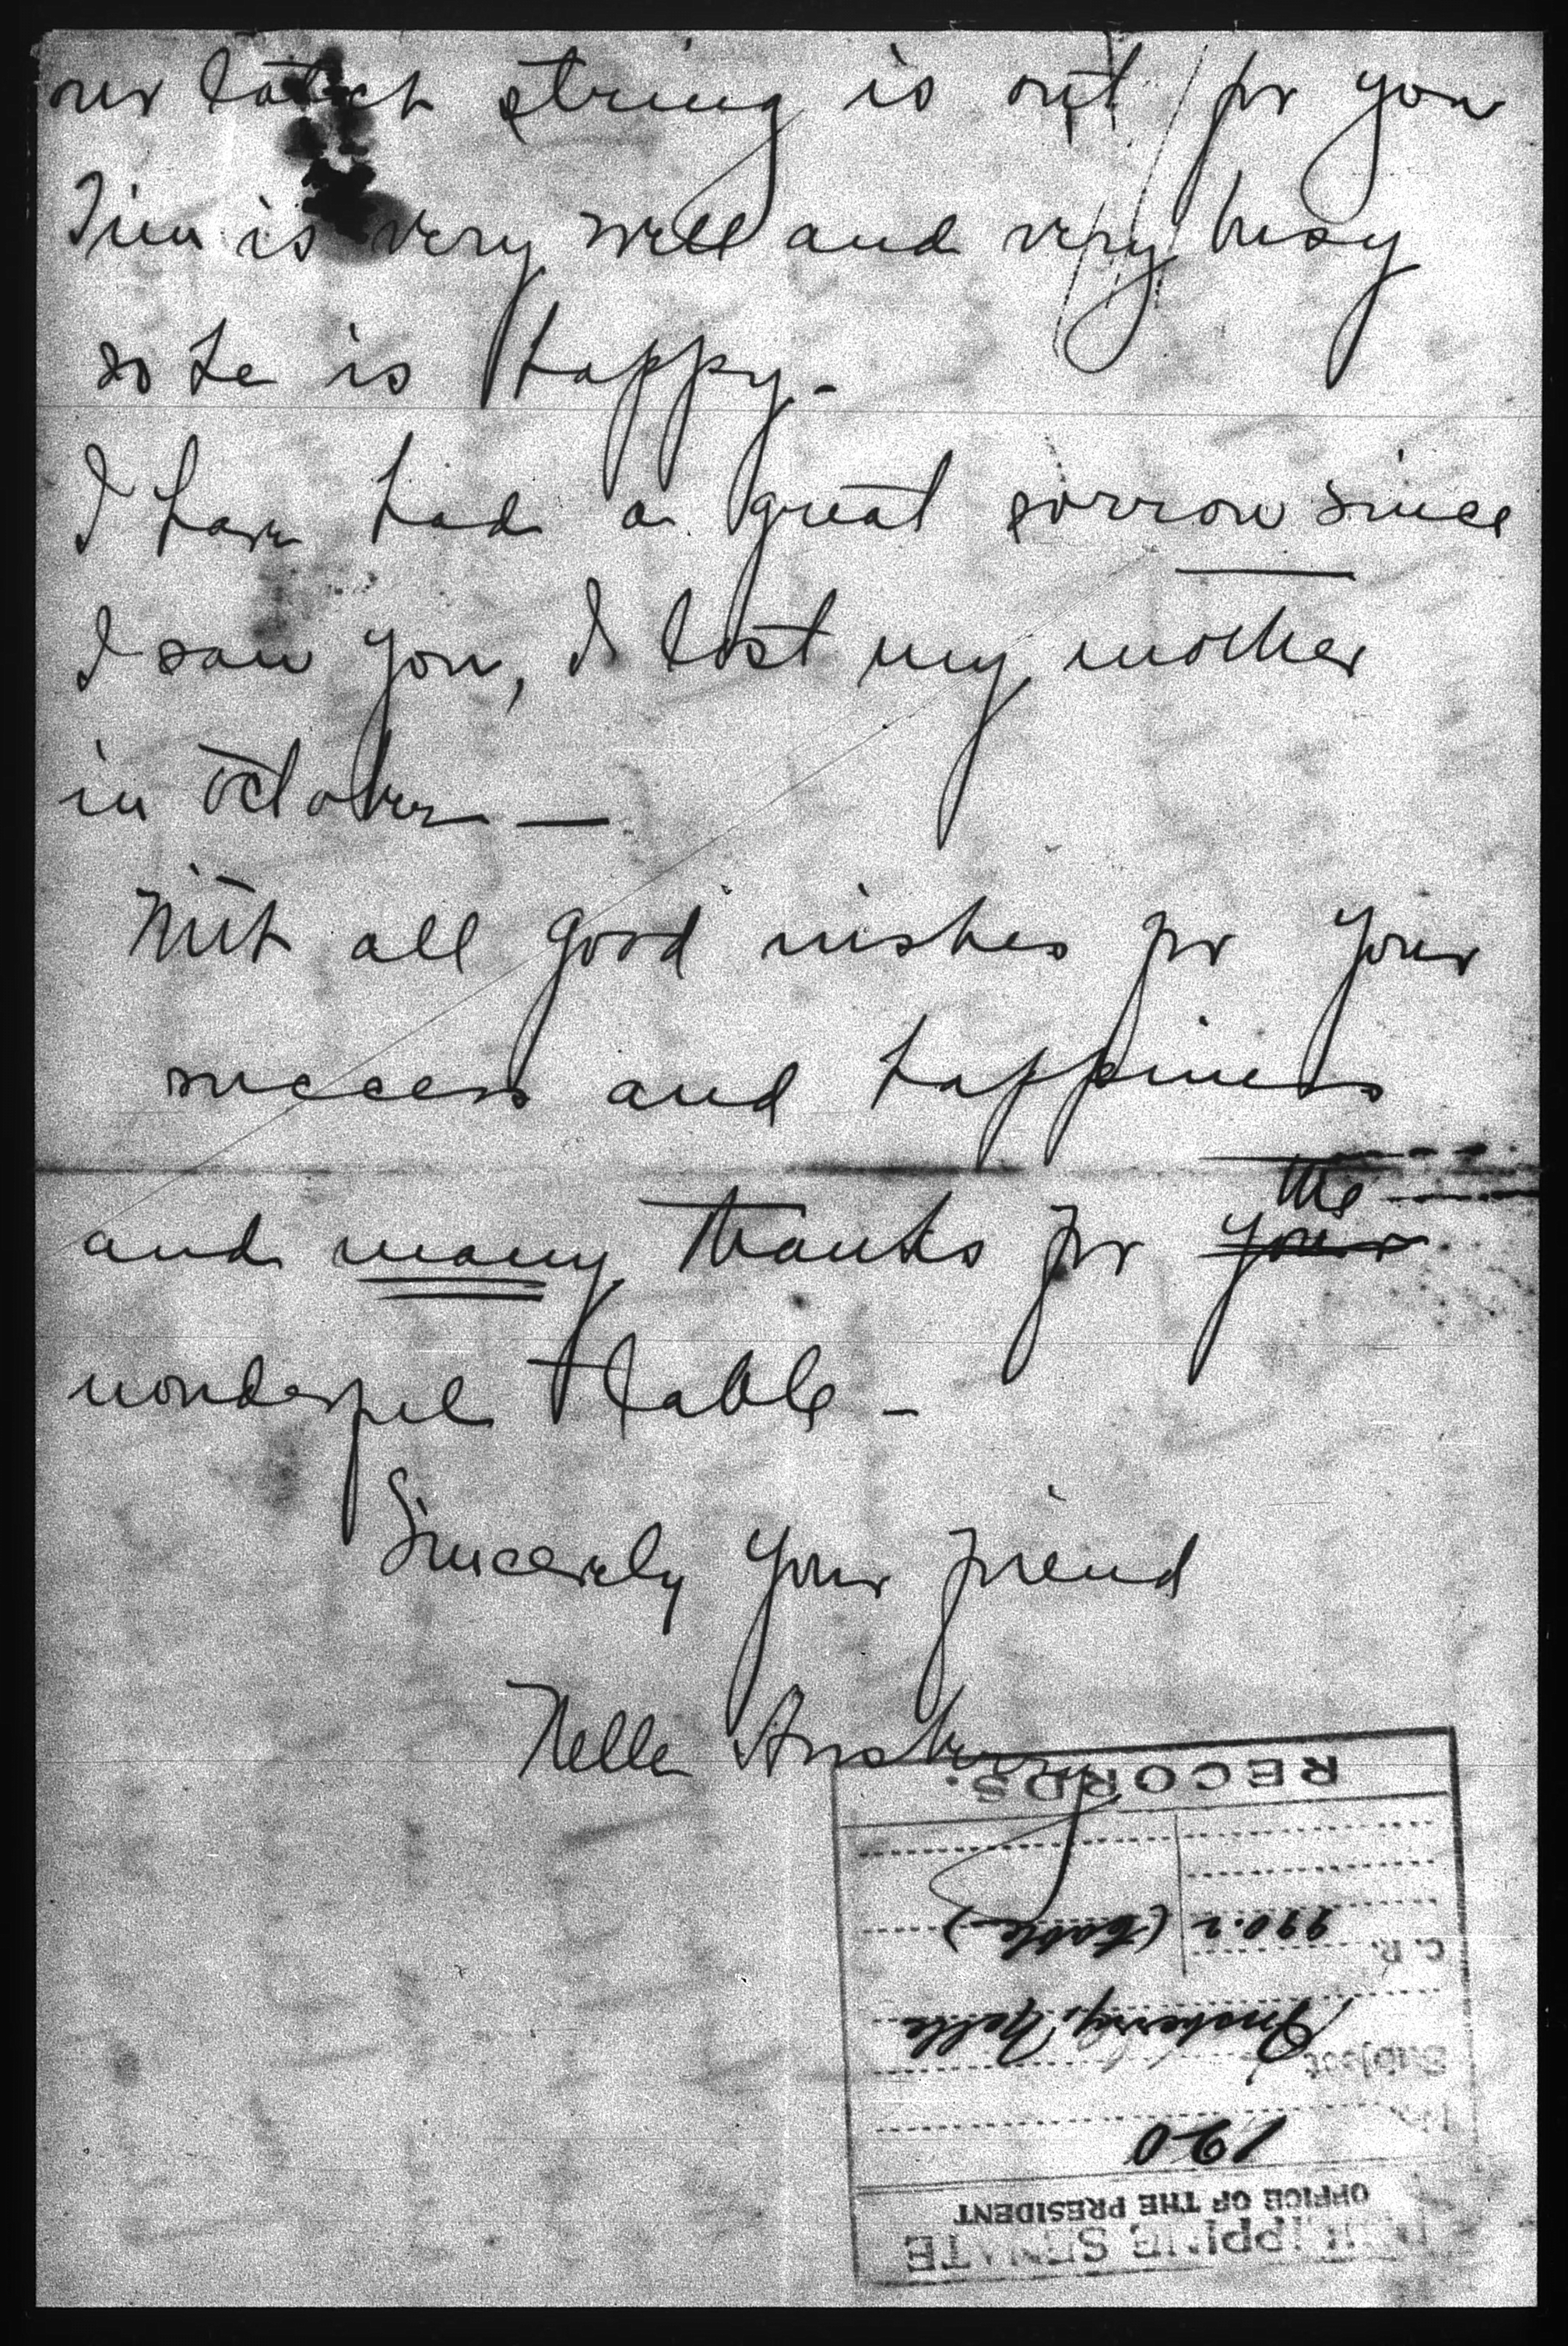 our latch string is out for you
Tim is very well and very busy
so he is happy -
I have had a great sorrow since
I saw you, I lost my mother
in October —
With all good wishes for your
success and happiness
the
and many thanks for your
wonderful table -
Sincerely your friend
Nelle Ansberry
RECORDS.
990.2 (table)
C. R.
Ansberry, Nelle
Subject
190
OFFICE OF THE PRESIDENT
PHILIPPINE SENATE